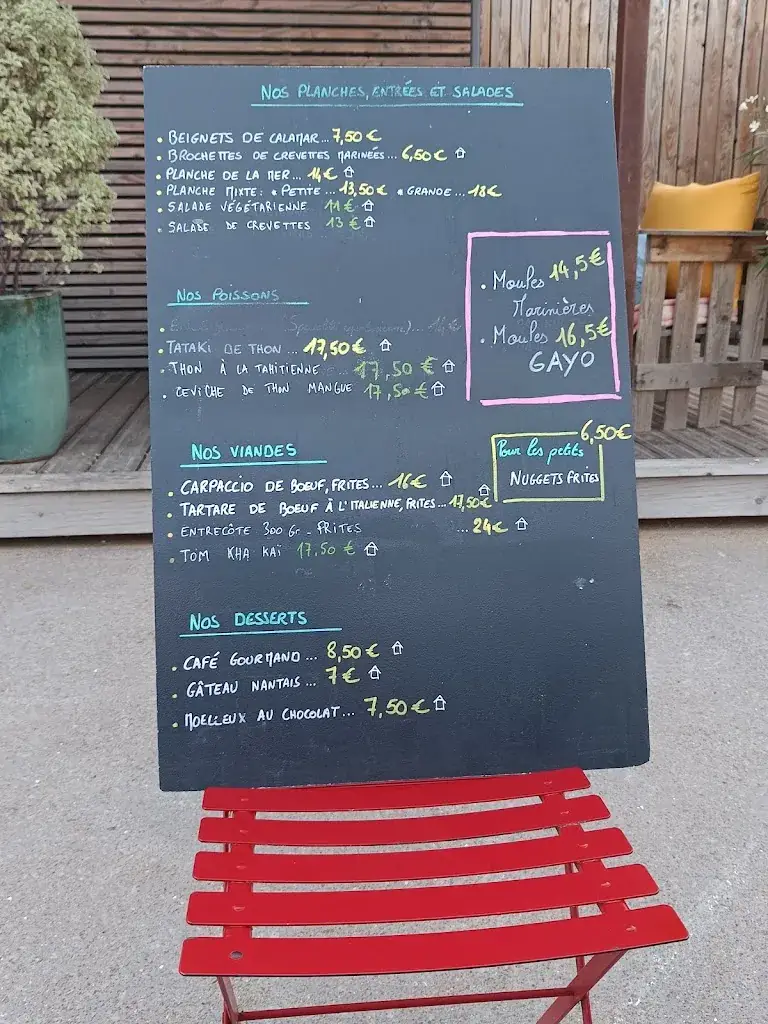 NOS PLANCHES, ENTRÉES ET SALADES
• BEIGNETS DE CALAMAR... 7,50 €
• BROCHETTES DE CREVETTES MARINÉES... 6,50 €
• PLANCHE DE LA MER... 14 €
• PLANCHE MIXTE: • PETITE ... 13,50 € • GRANDE ... 18 €
• SALADE VÉGÉTARIENNE 11 €
• SALADE DE CREVETTES 13 €
• Moules 14,5 €
Marinières
• Moules 16,5 €
GAYO
NOS POISSONS
• TATAKI DE THON ... 17,50 €
• THON À LA TAHITIENNE 17,50 €
• CEVICHE DE THON MANGUE 17,50 €
6,50 €
Pour les petits
NUGGETS FRITES
NOS VIANDES
• CARPACCIO DE BOEUF, FRITES... 16 €
• TARTARE DE BOEUF À L'ITALIENNE, FRITES... 17,50 €
• ENTRECÔTE 300 Gr - FRITES ... 24 €
• TOM KHA KAÏ 17,50 €
NOS DESSERTS
• CAFÉ GOURMAND ... 8,50 €
• GÂTEAU NANTAIS ... 7 €
• MOELLEUX AU CHOCOLAT... 7,50 €